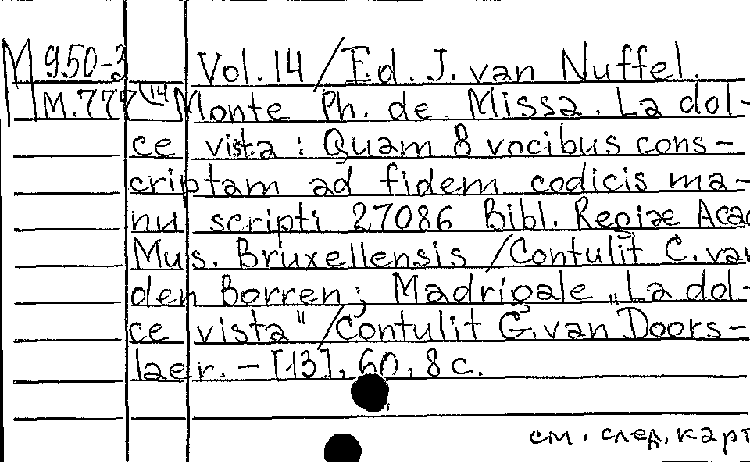 М 950-3 Vol. 14 / Ed. J. van Nuffel.
М.777(14 Monte Ph. de Missa. La dol-
ce vista : Quam 8 vocibus cons-
criptam ad fidem codicis ma-
nu scripti 27086 Bibl. Regiae Acad
Mus. Bruxellensis / Contulit C. van
den Borren; Madrigale „La dol-
ce vista" / Contulit G. van Doors-
laer. – [13], 60, 8 с.
см. след. карт